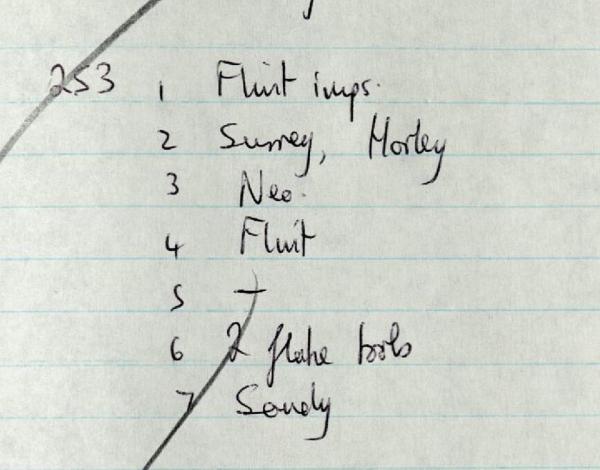 253 1 Flint imps.
2 Surrey, Horley
3 Neo.
4 Flint
5 —
6 2 flake tools
7 Sandy